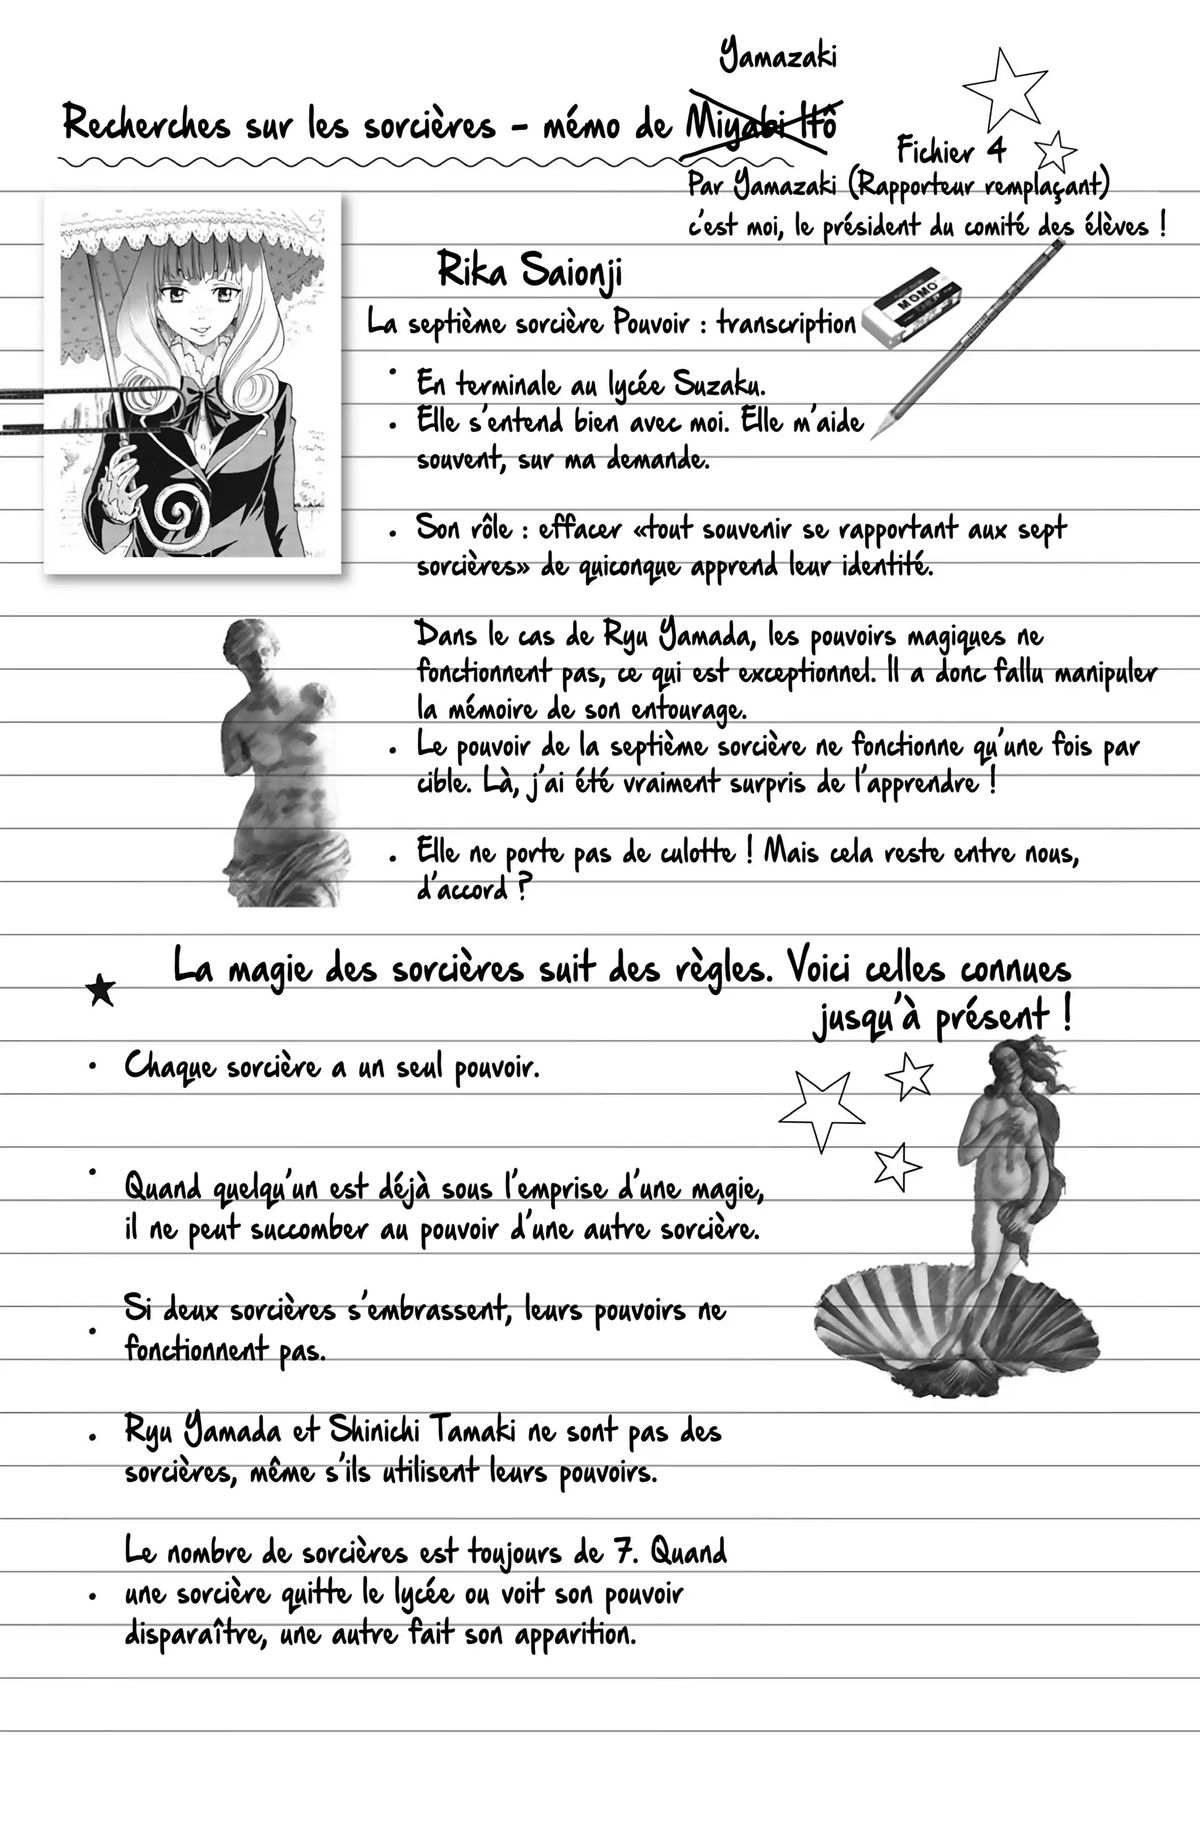 Yamazaki
Recherches sur les sorcières - mémo de Miyabi Itô
Fichier 4
Par Yamazaki (Rapporteur remplaçant)
c'est moi, le président du comité des élèves !
Rika Saionji
MOMO
La septième sorcière Pouvoir : transcription
• En terminale au lycée Suzaku.
• Elle s'entend bien avec moi. Elle m'aide
souvent, sur ma demande.
• Son rôle : effacer «tout souvenir se rapportant aux sept
sorcières» de quiconque apprend leur identité.
Dans le cas de Ryu Yamada, les pouvoirs magiques ne
fonctionnent pas, ce qui est exceptionnel. Il a donc fallu manipuler
la mémoire de son entourage.
• Le pouvoir de la septième sorcière ne fonctionne qu'une fois par
cible. Là, j'ai été vraiment surpris de l'apprendre !
• Elle ne porte pas de culotte ! Mais cela reste entre nous,
d'accord ?
★ La magie des sorcières suit des règles. Voici celles connues
jusqu'à présent !
• Chaque sorcière a un seul pouvoir.
• Quand quelqu'un est déjà sous l'emprise d'une magie,
il ne peut succomber au pouvoir d'une autre sorcière.
• Si deux sorcières s'embrassent, leurs pouvoirs ne
fonctionnent pas.
• Ryu Yamada et Shinichi Tamaki ne sont pas des
sorcières, même s'ils utilisent leurs pouvoirs.
• Le nombre de sorcières est toujours de 7. Quand
une sorcière quitte le lycée ou voit son pouvoir
disparaître, une autre fait son apparition.